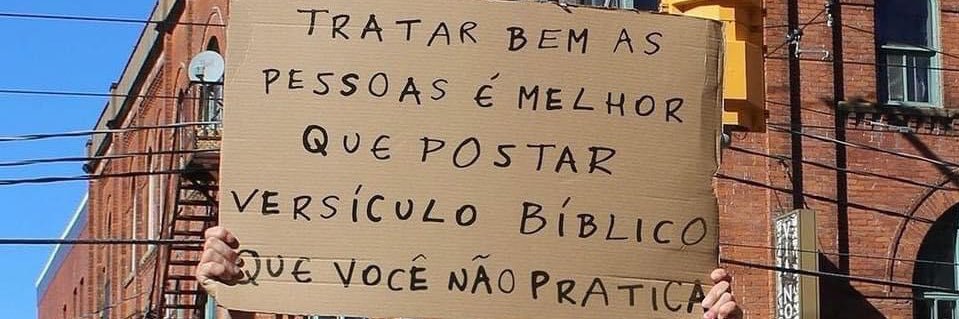 TRATAR BEM AS
PESSOAS É MELHOR
QUE POSTAR
VERSÍCULO BÍBLICO
QUE VOCÊ NÃO PRATICA